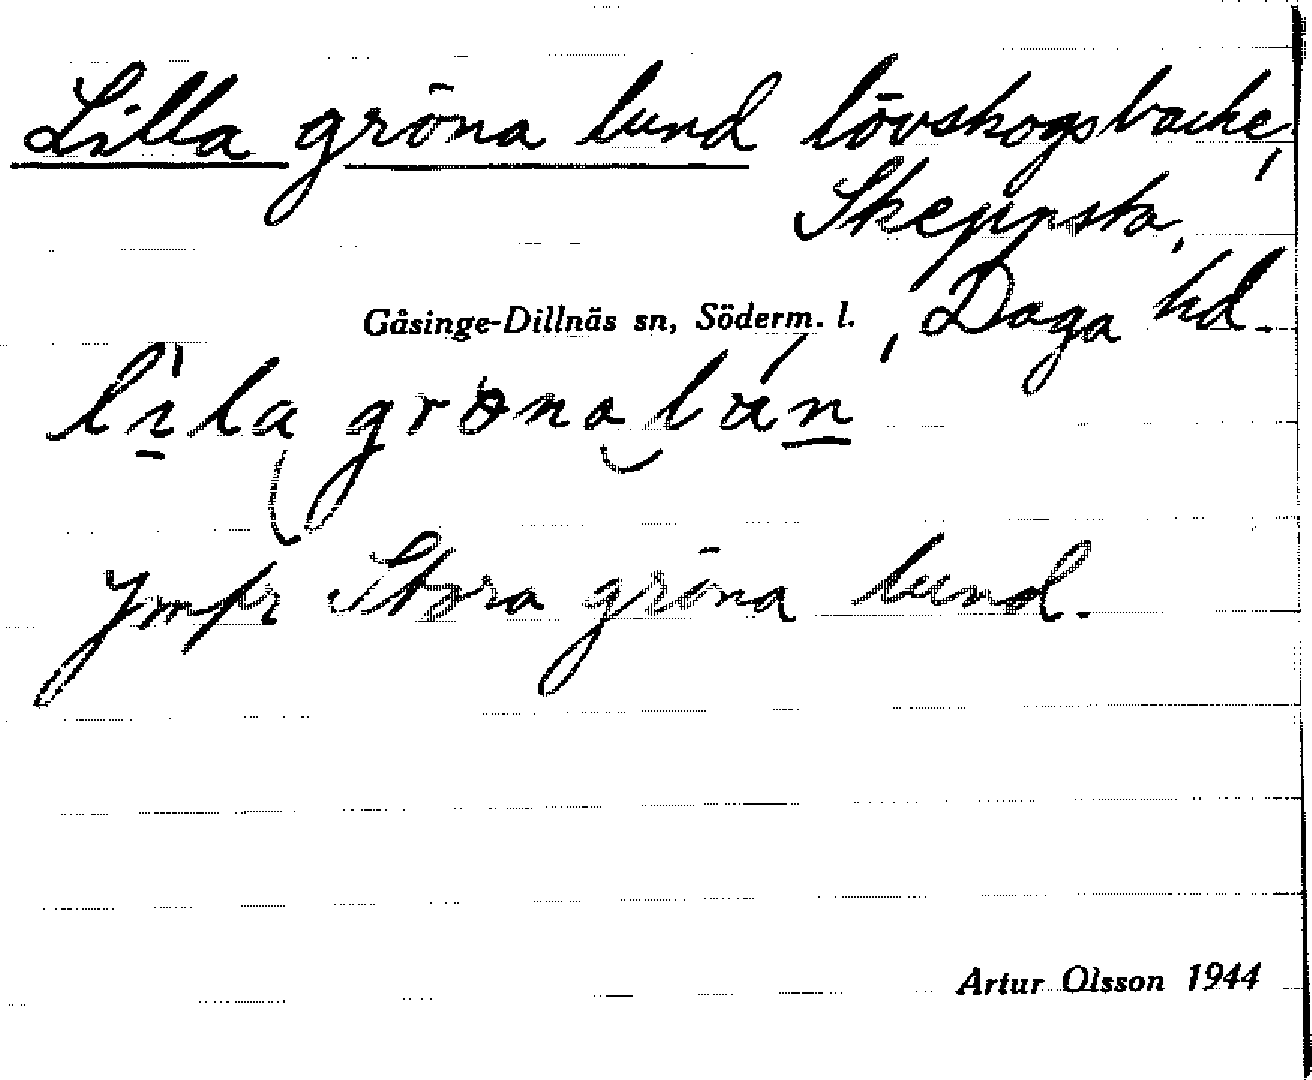 Lilla gröna lund lövskogsbacke,
Skeppsta,
Gåsinge-Dillnäs sn, Söderm. l., Daga hd.
lila gröna lun
Jmfr Stora gröna lund.
Artur Olsson 1944